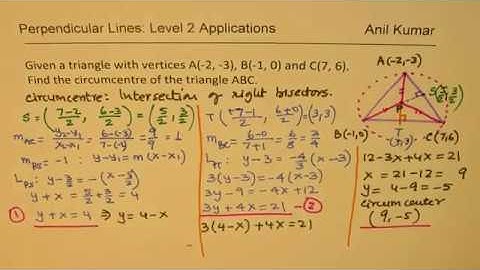 Perpendicular Lines: Level 2 Applications
Anil Kumar
Given a triangle with vertices A(-2, -3), B(-1, 0) and C(7, 6).
Find the circumcentre of the triangle ABC.
circumcentre: Intersection of right bisectors.
S = (7-2/2, 6-3/2) = (5/2, 3/2)
m_AC = y2-y1/x2-x1 = 6-(-3)/7-(-2) = 9/9 = 1
m_PS = -1 : y-y1 = m(x-x1)
L_PS: y-3/2 = -(x-5/2)
y+x = 5/2+3/2 = 4
① y+x=4 ⇒ y=4-x
T (+7-1/2, 6+0/2) = (3,3)
m_BC = 6-0/7+1 = 6/8 = 3/4
L_PT: y-3 = -4/3(x-3)
3(y-3) = -4(x-3)
3y-9 = -4x+12
3y+4x=21 -②
3(4-x)+4x=21
A(-2,-3)
S(5/2, 3/2)
P
B(-1,0)
T
(3,3)
C(7,6)
12-3x+4x=21
x = 21-12= 9
y = 4-9=-5
circumcenter
(9,-5)